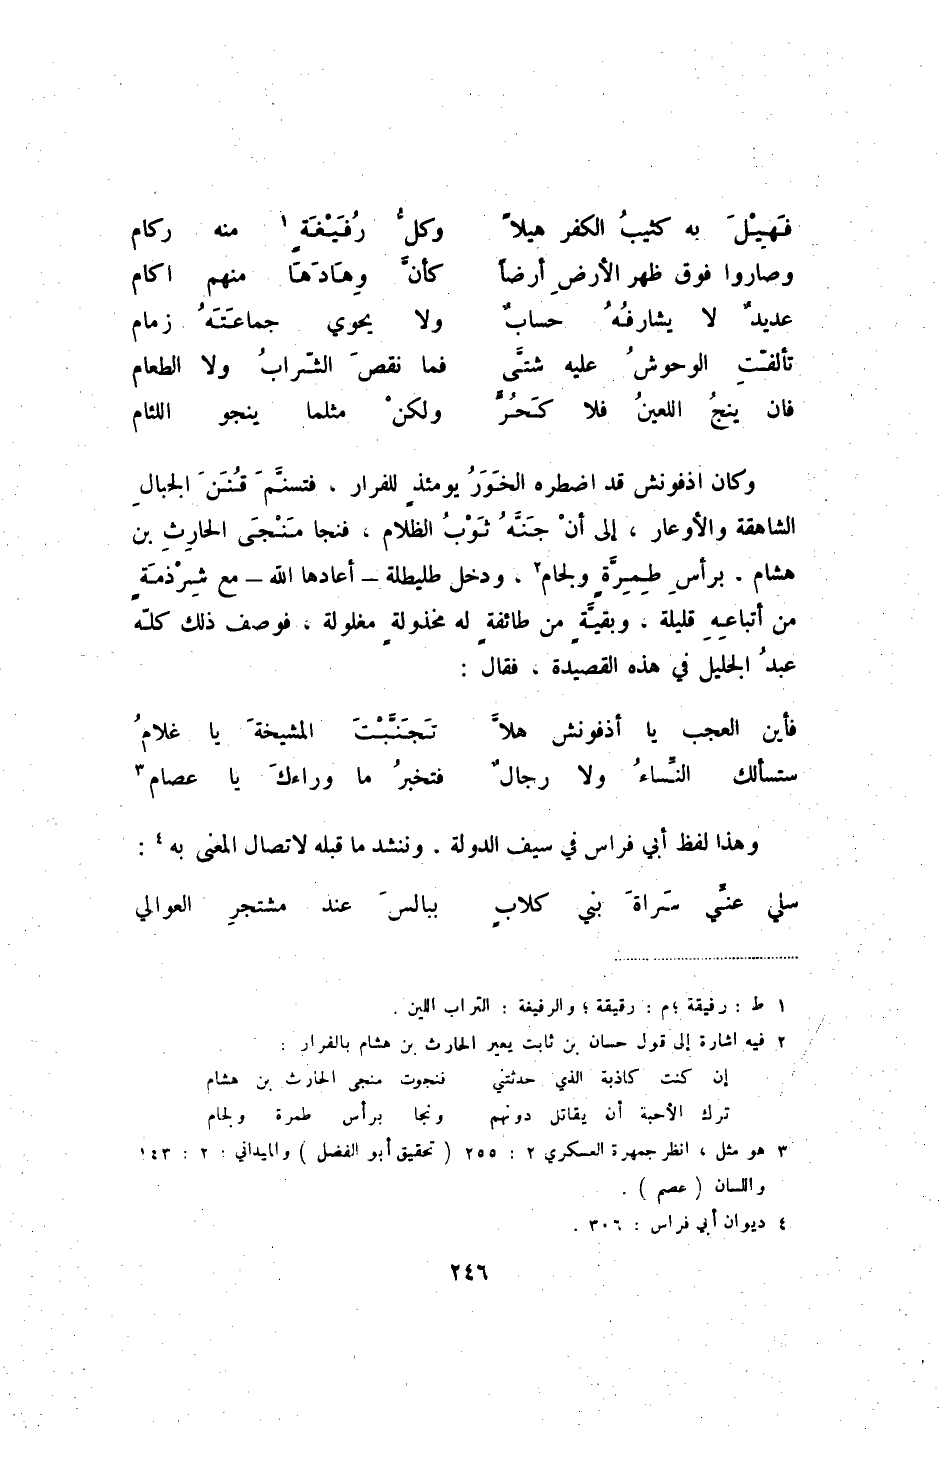 فَهِيْلَ به كثيبُ الكفر هيلاً وكلُّ رُفَيْغَةٍ ١ منه ركام
وصاروا فوق ظهر الأرضِ أرضاً كأنَّ وِهَادَهَا منهم اكام
عديدٌ لا يشارفُهُ حسابٌ ولا يحوي جماعَتَهُ زمام
تألفتِ الوحوشُ عليه شتَّى فما نقصَ الشّرابُ ولا الطعام
فان ينجُ اللعينُ فلا كَحُرٍّ ولكنْ مثلما ينجو اللئام
وكان اذفونش قد اضطره الخَوَرُ يومئذٍ للفرار ، فتسنَّمَ قُنَنَ الجبالِ
الشاهقة والأوعار ، إلى أنْ جَنَّهُ ثَوْبُ الظلام ، فنجا مَنْجَى الحارِثِ بن
هشام . برأسِ طِمِرَّةٍ ولجام٢ ، ودخل طليطلة – أعادها الله – مع شِرْذمَةٍ
من أتباعِهِ قليلة ، وبقيَّةٍ من طائفةٍ له مخذولةٍ مغلولة ، فوصف ذلك كلّه
عبدُ الجليل في هذه القصيدة ، فقال :
فأين العجب يا أذفونش هلاَّ تَجَنَّبْتَ المشيخةَ يا غلامُ
ستسألك النِّساءُ ولا رجالٌ فتخبرُ ما وراءكَ يا عصام٣
وهذا لفظ أبي فراس في سيف الدولة . وننشد ما قبله لاتصال المعنى به ٤ :
سلي عنّي سَراةَ بني كلابٍ ببالسَ عند مشتجرِ العوالي
١ ط : رفيقة ؛م : رقيقة ؛ والرفيغة : التراب اللين .
٢ فيه اشارة إلى قول حسان بن ثابت يعير الحارث بن هشام بالفرار :
إن كنت كاذبة الذي حدثتني فنجوت منجى الحارث بن هشام
ترك الأحبة أن يقاتل دونهم ونجا برأس طمرة ولجام
٣ هو مثل ، انظر جمهرة العسكري ٢ : ٢٥٥ ( تحقيق أبو الفضل ) والميداني : ٢ : ١٤٣
واللسان ( عصم ) .
٤ ديوان أبي فراس : ٣٠٦ .
٢٤٦